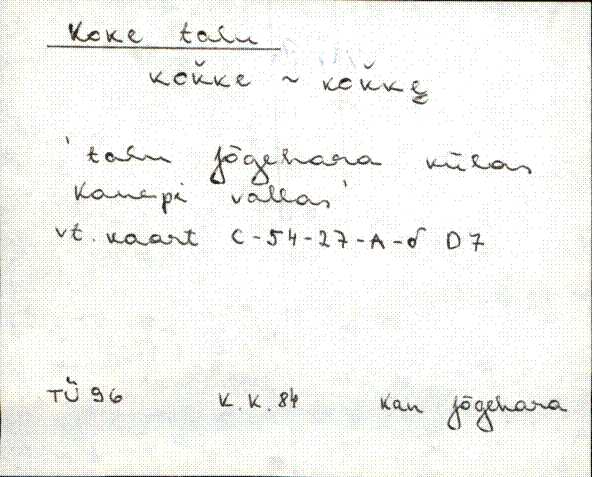 Koke talu
kok̆ke ~ kok̆kę
'talu Jõgehara külas
Kanepi vallas'
vt. kaart C-54-27-A-б D7
TÜ 96 K.K. 84 Kan Jõgehara